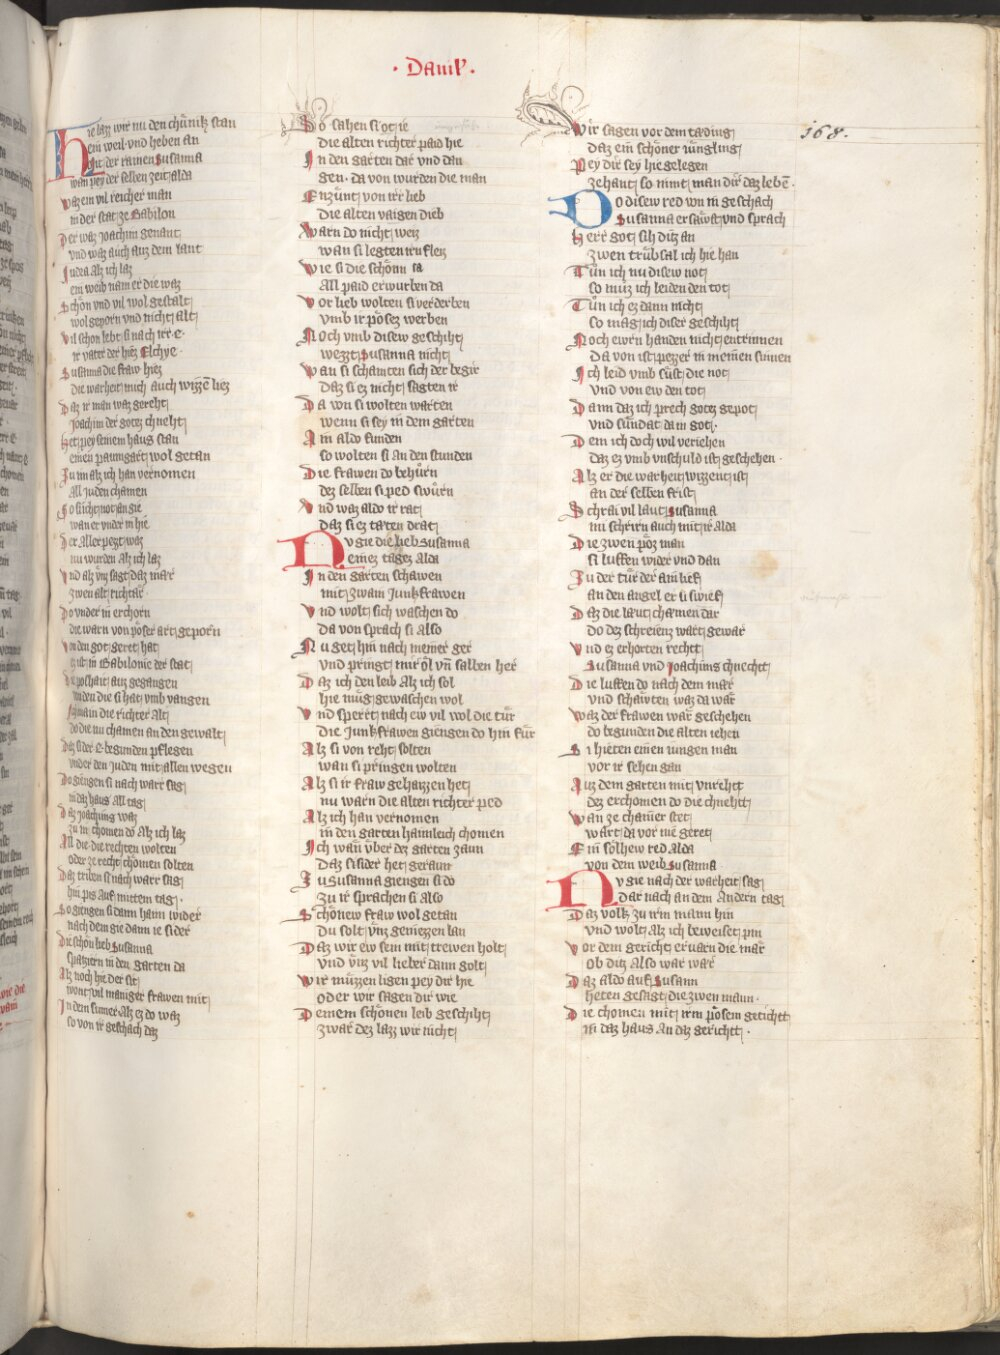 · Daniel ·
168.
Hie lazz wir nu den chünik stan
ein weil vnd heben an
Geht der rainen Susanna
wan pey der selben zeit alda
Waz ein vil reicher man
in der stat ze Babilon
Der waz Joachim genant
vnd waz auch auz dem lant
Judea Alz ich laz
ein weib nam er die waz
Schön vnd vil wol gestalt
wol geporn vnd nicht alt
Vil schon lebt si nach irr e ·
ir vater der hiez Elchye ·
Susanna die fraw hiez
die warheit mich auch wizzē liez
Daz ir man waz gereht
Joachim der gotez chneht
Het pey seinem haus stan
einen paumgart wol getan
Zu im alz ich han vernomen
All Juden chamen
So si icht not an gie
wan er vnder in hie
Der Aller pezt waz
nu wurden Alz ich laz
Vnd alz vnz sagt daz mär
zwen alt richtär
Do vnder in erchorn
die warn von pöser art geporn
Von den got geret hat
in Babilonie der stat
auz gegangen
die si hat vmb vangen
die richter Alt
do die nu chamen an den gewalt
Daz si der e begunden pflegen
vnder den Juden mit allen wegen
Do giengen si nach warr sag
in daz haus All tag
Daz Joachims waz
zu im chomen do Alz ich laz
All die die rechten wolten
oder ze recht chomen solten
Daz triben si nach warr sag
hin piz auf mittem tag ·
So giengen si dann haim wider
nach dem gie dann ie sider
Die schön lieb Susanna
spatziern in den garten da
Alz noch hie der sit
wont vil maniger frawen mit
In dem sumer Alz ez do waz
so von ir geschach daz
Do sahen si ot ie
die alten richter paid hie
In den garten dar vnd dan
gen · da von wurden die man
Enzünt von irr lieb
die alten vaigen dieb
Warn do nicht weiz
wan si legten irn fleiz
Wie si die schönn sa
All paid erwurben da
Vor lieb wolten si verderben
vmb ir pösez werben
Noch vmb disew geschiht
wezzt Susanna nicht
Wan si schamten sich der begir
Daz si ez nicht sagten ir
Da von si wolten warten
wenn si sey in dem garten
Ain aldo funden
so wolten si an den stunden
Die frawen do behürn
dez selben si ped swürn
Vnd waz aldo ir rat
daz si ez taten drat
Nv gie die lieb Susanna
einez tagez Alda
In den garten schawen
mit zwain Junkfrawen
Vnd wolt sich waschen do
da von sprach si Also
Nu get hin nach meiner ger
vnd pringt mir öl vnd salben her
Daz ich den leib Alz ich sol
hie müg gewaschen wol
Vnd sperrt nach ew vil wol die tür
die Junkfrawen giengen do hin für
Alz si von reht solten
wan si pringen wolten
Alz si ir fraw gehaizzen het
nu warn die alten richter ped
Alz ich han vernomen
in den garten haimleich chomen
Ich wän vber dez garten zaun
Daz si sider het geraun
Zu Susanna giengen si do
zu ir sprachen si Also
Schönew fraw wol getan
Du solt vnz geniezzen lan
Daz wir ew sein mit trewen holt
vnd vnz vil lieber dann golt
Wir müzzen ligen pey dir hie
oder wir sagen dir wie
Deinem schönen leib geschiht
zwar dez lazz wir nicht
Wir sagen vor dem täding
daz ein schöner iüngling
Pey dir sey hie gelegen
zehant so nimt man dir daz lebē ·
Do disew red wn in geschach
Susanna ersäwft vnd sprach
Herr got sih ditz an
zwen trübsal ich hie han
Tün ich nu disew not
so müz ich leiden den tot
Tün ich ez dann nicht
so mag ich diser geschiht
Noch ewrn handen nicht entrinnen
Da von ist pezzer in meinen sinnen
Ich leid vmb süst die not
vnd von ew den tot
Dann daz ich prech gotez gepot
vnd sündat dam got ·
Dem ich doch wil veriehen
daz ez vmb vnschuld ist geschehen ·
Alz er die warheit wizzent ist
an der selben frist
Schrai vil laut Susanna
nu schrirn auch mit ir alda
Die zwen pöz man
si luffen wider vnd dan
Zu der tür der ain lief
an den angel er si swief
Daz die laut chamen dar
do dez schreienz wart gewar
Vnd ez erhorten recht
Susanna vnd Joachims chnecht
Die luffen do nach dem mär
vnd schawten waz da wär
Waz der frawen wär geschehen
do begunden die alten iehen
Si hieten einen iungen man
vor ir sehen gan
Auz dem garten mit vnreht
dez erchomen do die chneht
Wan ze chainer stet
wart da vor nie geret
Ein sölhew red Alda
von dem weib Susanna ·
Nv gie nach der warheit sag
Dar nach an dem Andern tag
Daz volk zu irm mann hin
vnd wolt Alz ich beweiset pin
Vor dem gericht ervarn die mär
ob ditz Also war wär
Daz aldo auf Susann
heten gesagt die zwen mann ·
Die chomen mit irm pösem geticht
in daz haus An daz gericht ·